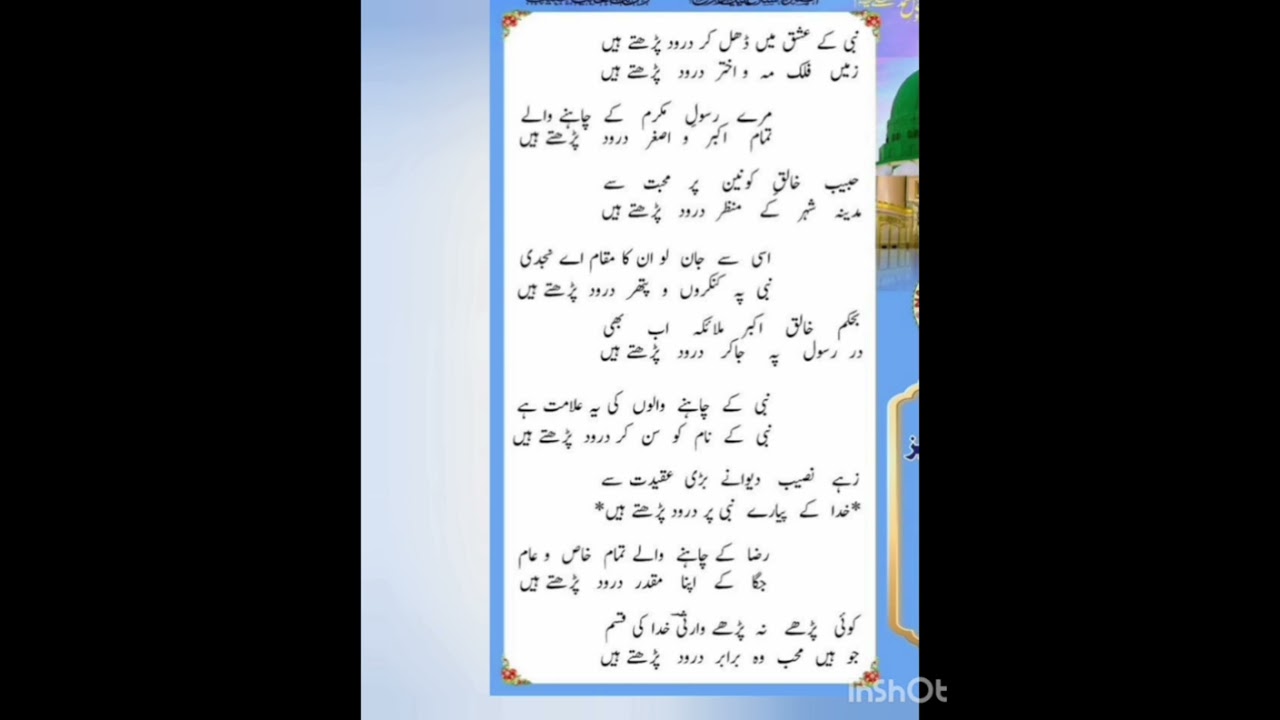 نبی کے عشق میں ڈھل کر درود پڑھتے ہیں
زمیں فلک مہ و اختر درود پڑھتے ہیں
مرے رسولِ مکرم کے چاہنے والے
تمام اکبر و اصغر درود پڑھتے ہیں
حبیب خالقِ کونین پر محبت سے
مدینہ شہر کے منظر درود پڑھتے ہیں
اسی سے جان لو ان کا مقام اے نجدی
نبی پہ کنکروں و پتھر درود پڑھتے ہیں
بحکم خالق اکبر ملائکہ اب بھی
در رسول پہ جاکر درود پڑھتے ہیں
نبی کے چاہنے والوں کی یہ علامت ہے
نبی کے نام کو سن کر درود پڑھتے ہیں
زہے نصیب دیوانے بڑی عقیدت سے
*خدا کے پیارے نبی پر درود پڑھتے ہیں*
رضا کے چاہنے والے تمام خاص و عام
جگا کے اپنا مقدر درود پڑھتے ہیں
کوئی پڑھے نہ پڑھے وارثیؔ خدا کی قسم
جو ہیں محب وہ برابر درود پڑھتے ہیں
InShOt